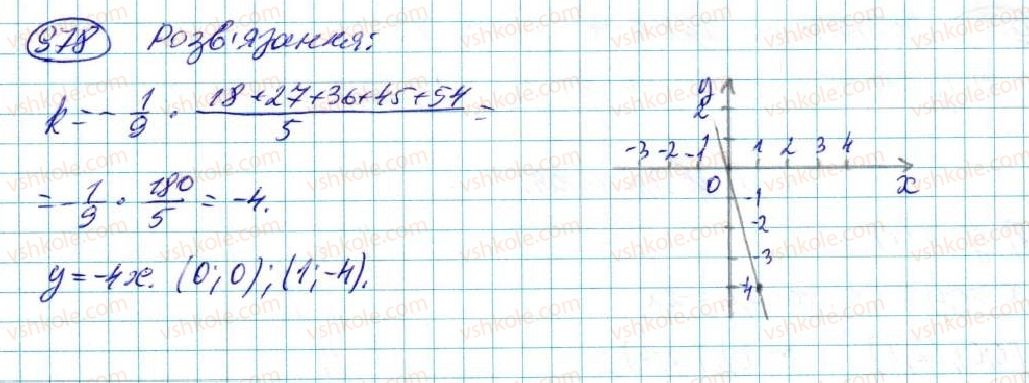 978 Розв'язання:
k = -1/9 · (18+27+36+45+54)/5 =
= -1/9 · 180/5 = -4.
y = -4x. (0; 0); (1; -4).
y
2
-3 -2 -1 1 2 3 4
0 x
-1
-2
-3
-4
vshkole.com